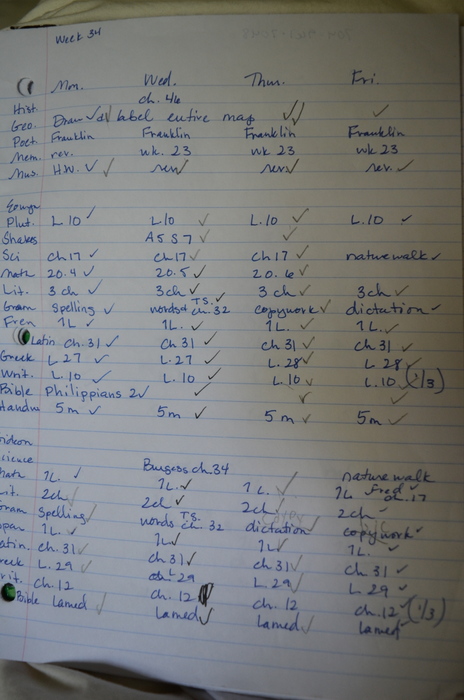 Week 34
Mon. Wed. Thur. Fri.
Hist. ch. 46
Geo. Draw & label entire map ✓✓ ✓
Poet. Franklin Franklin Franklin Franklin
Mem. rev. wk. 23 wk 23 wk. 23
Mus. H.W. ✓ ✓ rev ✓ rev ✓ rev. ✓
Plut. L.10 ✓ L.10 ✓ L.10 ✓ L.10 ✓
Shakes A5 S7 ✓ ✓
Sci ch 17 ✓ ch 17 ✓ ch 17 ✓ nature walk ✓
math 20.4 ✓ 20.5 ✓ 20.6 ✓
Lit. 3 ch ✓ 3 ch ✓ 3 ch ✓ 3 ch ✓
Gram spelling ✓ words T.S. ch. 32 copywork ✓ dictation ✓
Fren 1L ✓ 1L. ✓ 1L. ✓ 1L. ✓
Latin ch. 31 ✓ ch 31 ✓ ch 31 ✓ ch 31 ✓
Greek L 27 ✓ L. 27 ✓ L. 28 ✓ L. 28 ✓
Writ. L.10 ✓ L.10 ✓ L.10 ✓ L.10 ✓ (2/3)
Bible Philippians 2 ✓ ✓ ✓ ✓
Handw 5m ✓ 5m ✓ 5m ✓ 5m ✓
ideon
cience Burgess ch. 34 nature walk
math 1L. ✓ 1L. ✓ 1L. ✓ 1L Fred ch. 17
it. 2ch ✓ 2ch ✓ 2ch ✓ 2ch ✓
ram Spelling ✓ words T.S. ch. 32 dictation ✓ copywork ✓
span 1L. ✓ 1L ✓ 1L ✓ 1L. ✓
atin. ch. 31 ✓ ch 31 ✓ ch 31 ✓ ch 31 ✓
reek L. 29 ✓ L 29 ✓ L. 29 ✓ L. 29 ✓
rit. ch. 12 ch. 12 ch. 12 ch. 12 ✓ (1/3)
Bible Lamed ✓ Lamed ✓ Lamed ✓ Lamed ✓